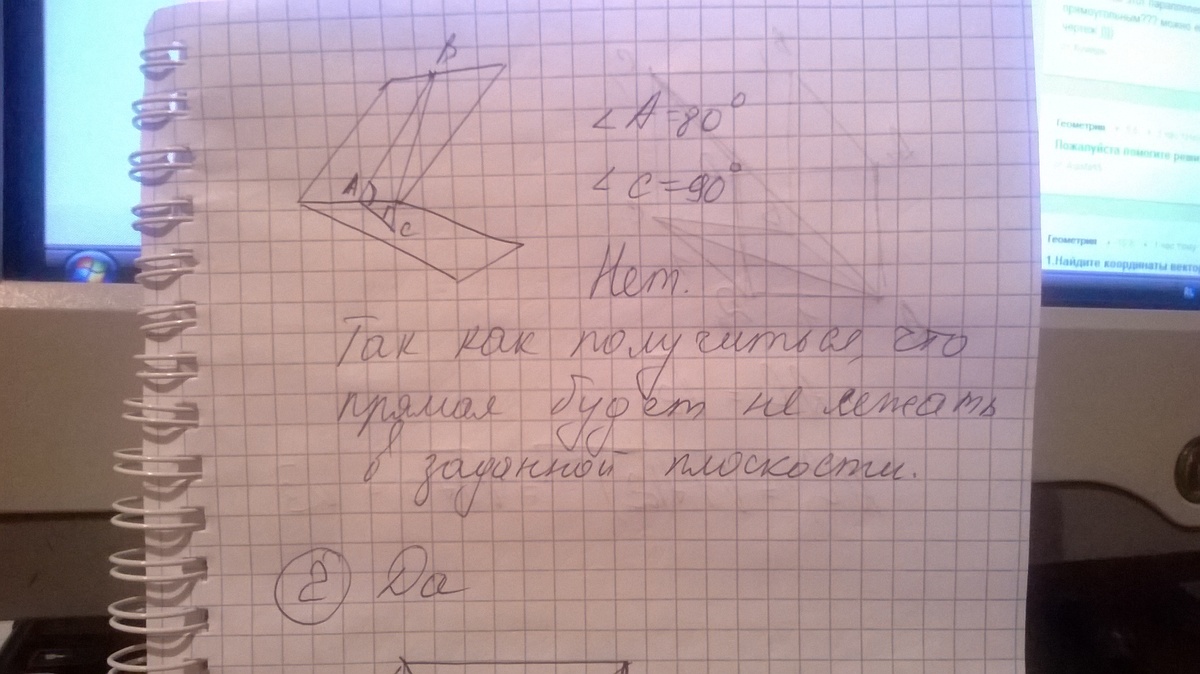 B
∠ A = 80°
A
C
∠ C = 90°
Нет.
Так как получиться, что
прямая будет не лежать
в заданной плоскости.
2 Да
прямоугольным??? можно
чертеж )))
Геометрия
Пожалуйста помогите
Геометрия
1 час
1.Найдите координаты